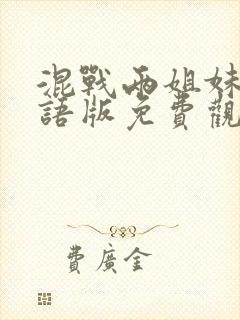 混戰兩姐妹
語版免費觀
費廣全